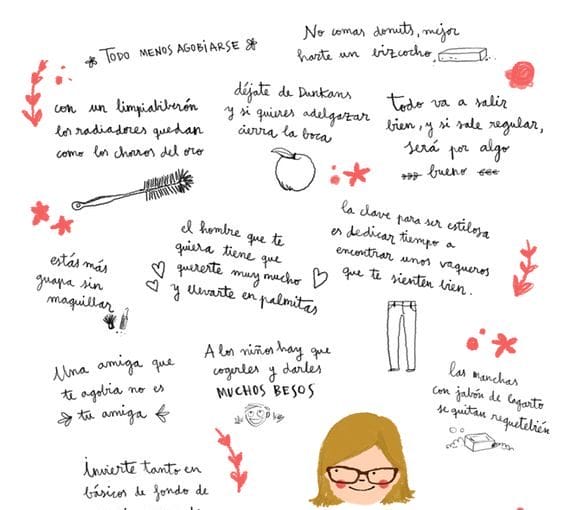 TODO MENOS AGOBIARSE
No comas donuts, mejor
harte un bizcocho.
con un limpiabiberón
los radiadores quedan
como los chorros del oro
déjate de Dunkans
y si quieres adelgazar
cierra la boca
todo va a salir
bien, y si sale regular,
será por algo
bueno
estás más
guapa sin
maquillar
el hombre que te
quiera tiene que
quererte muy mucho
y llevarte en palmitas
la clave para ser estilosa
es dedicar tiempo a
encontrar unos vaqueros
que te sienten bien.
Una amiga que
te agobia no es
tu amiga
A los niños hay que
cogerles y darles
MUCHOS BESOS
las manchas
con jabón de Lagarto
se quitan requetebién
invierte tanto en
básicos de fondo de